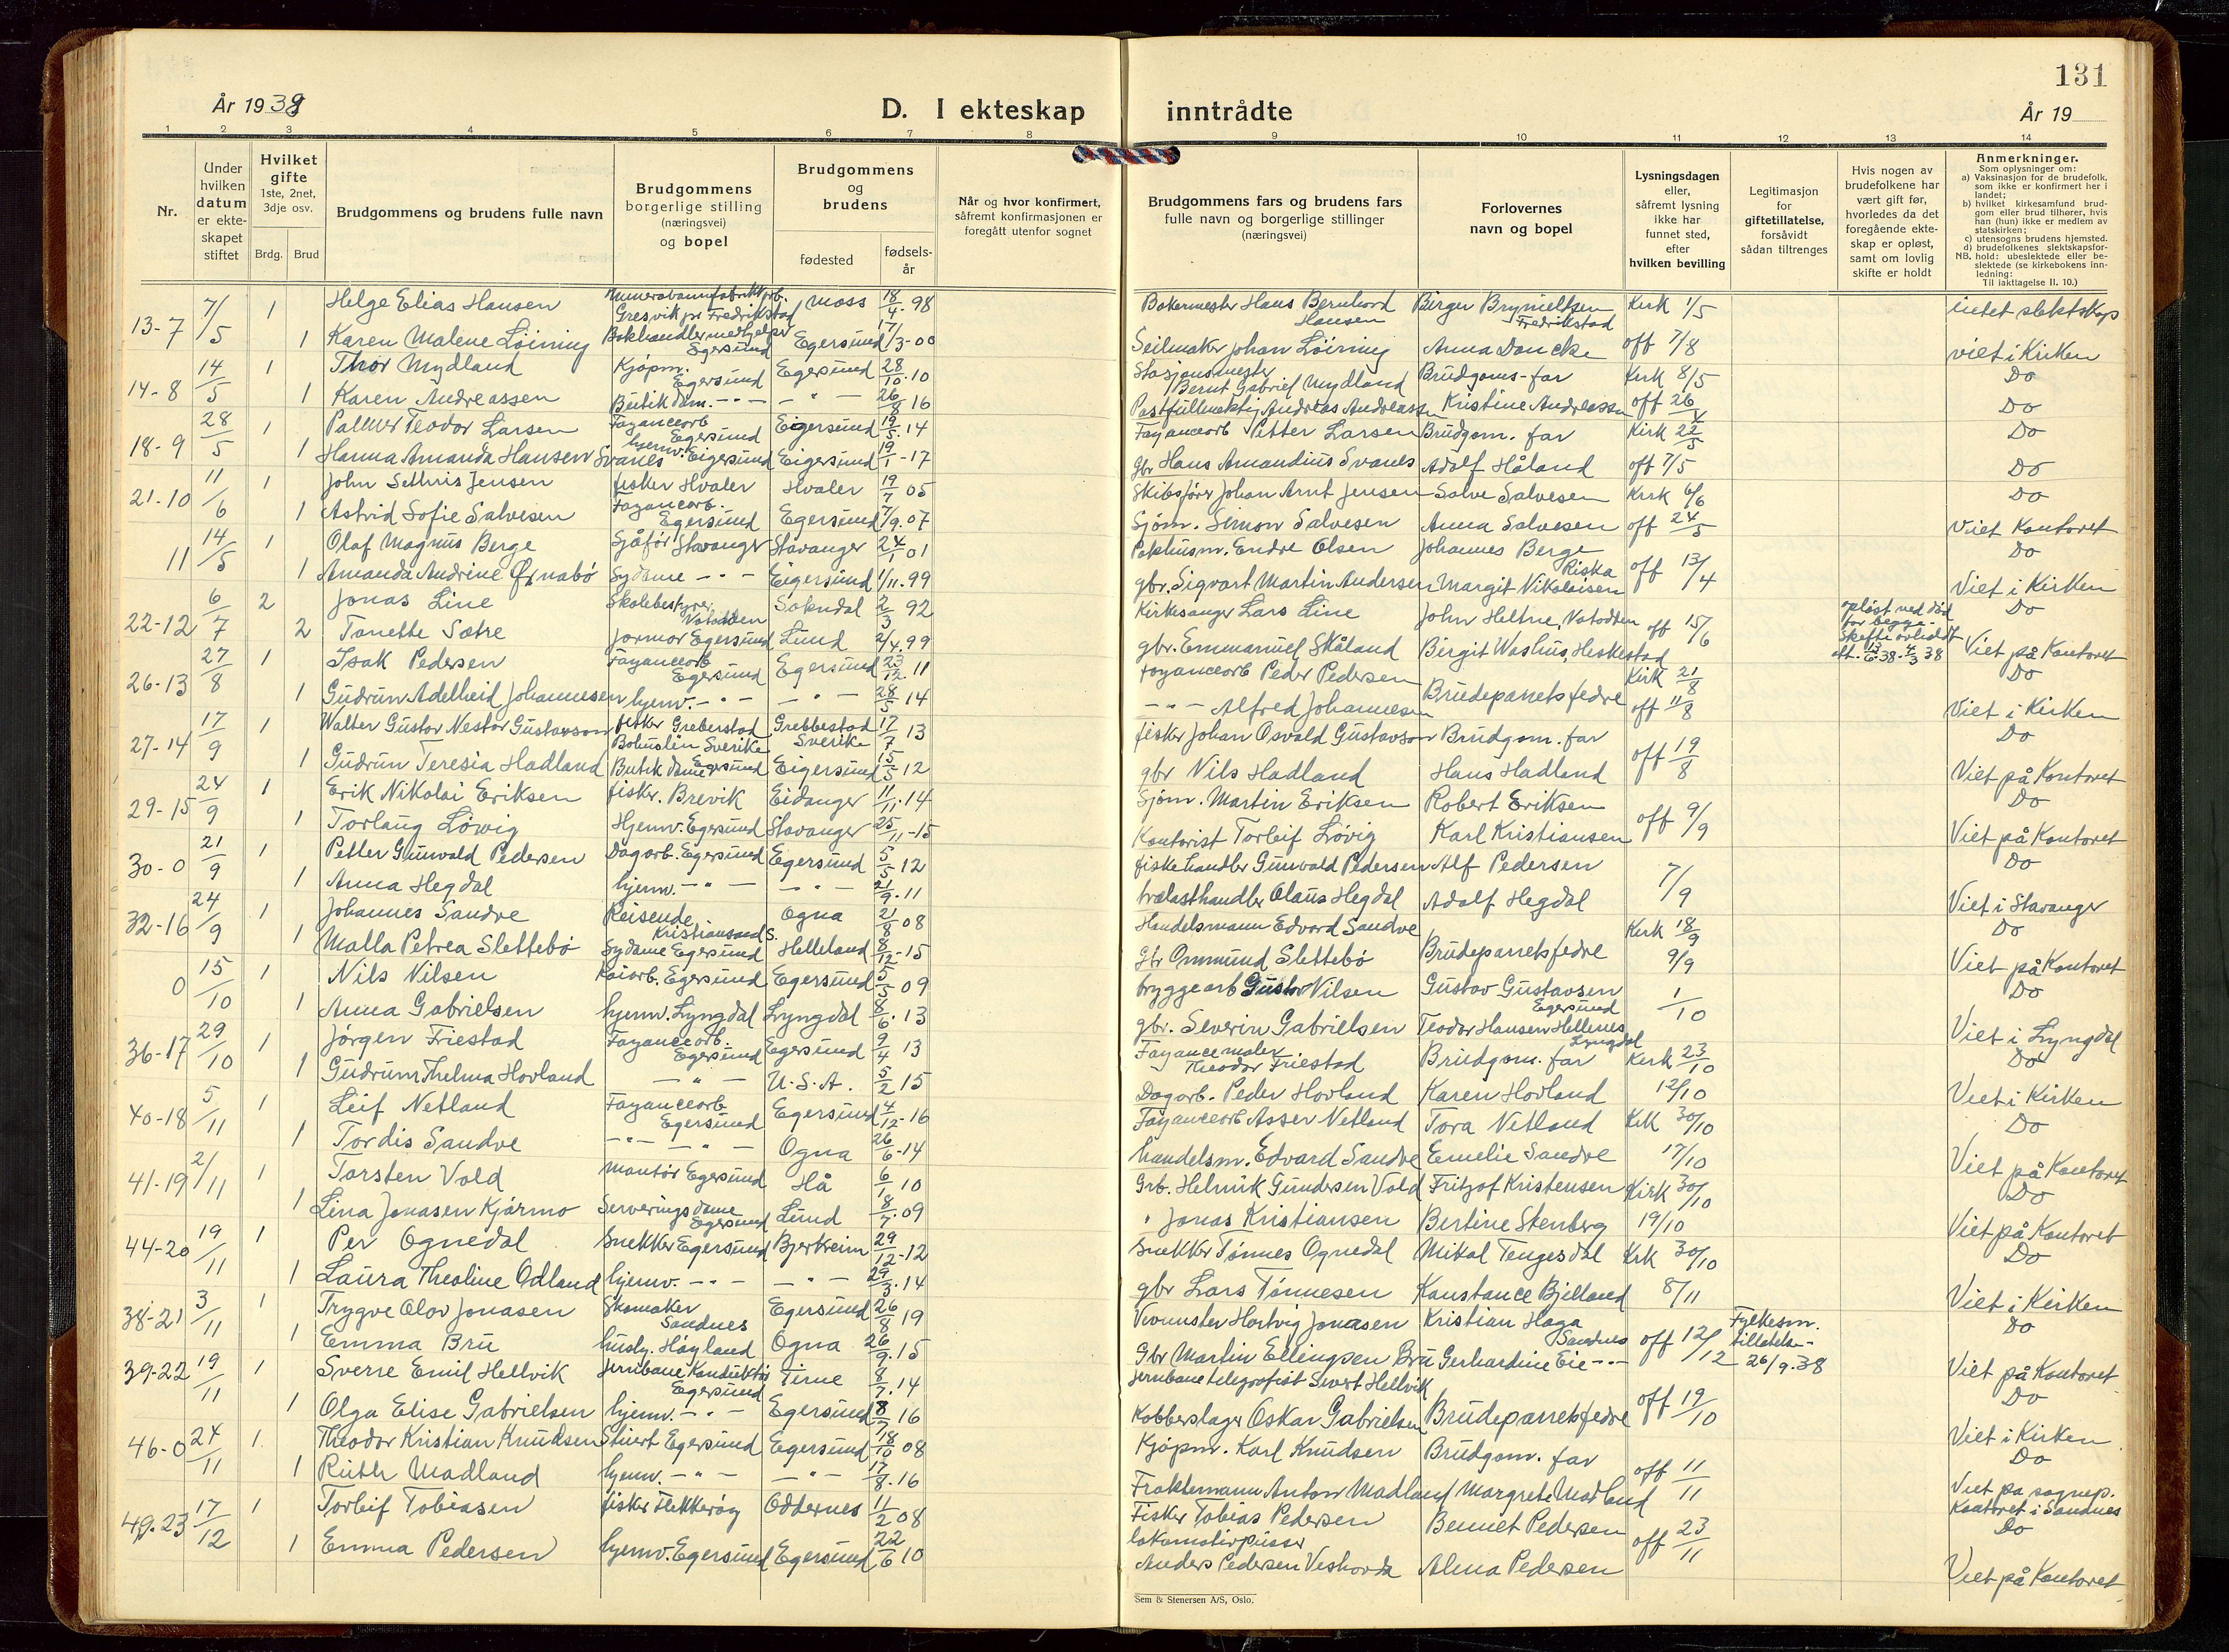 131
År 1938
D. I ekteskap inntrådte
År 19
1 2 3 4 5 6 7 8 9 10 11 12 13 14
Nr.
Under hvilken datum er ekteskapet stiftet
Hvilket gifte
1ste, 2net, 3dje osv.
Brdg. Brud
Brudgommens og brudens fulle navn
Brudgommens borgerlige stilling (næringsvei) og bopel
Brudgommens og brudens
fødested
fødsels-år
Når og hvor konfirmert, såfremt konfirmasjonen er foregått utenfor sognet
Brudgommens fars og brudens fars fulle navn og borgerlige stillinger (næringsvei)
Forlovernes navn og bopel
Lysningsdagen eller, såfremt lysning ikke har funnet sted, efter hvilken bevilling
Legitimasjon for giftetillatelse, forsåvidt sådan tiltrenges
Hvis nogen av brudefolkene har vært gift før, hvorledes da det foregående ekteskap er opløst, samt om lovlig skifte er holdt
Anmerkninger.
Som oplysninger om:
a) Vaksinasjon for de brudefolk, som ikke er konfirmert her i landet;
b) hvilket kirkesamfund brudgom eller brud tilhører, hvis han (hun) ikke er medlem av statskirken;
c) utensogns brudens hjemsted.
d) brudefolkenes slektskapsforhold: ubeslektede eller beslektede (se kirkebokens innledning:
NB. Til iakttagelse II. 10.)
13-7 7/5 1 Helge Elias Hansen Gresvik pr Fredrikstad Moss 18/4-98 Bakermester Hans Bernhard Hansen Birger Brynieltsen Fredrikstad Kirk 1/5 intet slektskap
1 Karen Malene Löining Bokhandlermedhjelper Egersund Egersund 17/3-00 Seilmaker Johan Löining Anna Dancke off 7/8 viet i Kirken
14-8 14/5 1 Thor Mydland Kjøpm. Egersund Egersund 28/10-10 Stasjonsmester Bernt Gabriel Mydland Brudgoms-far Kirk 8/5 Do
1 Karen Andreassen Butikdam. -"- -"- 26/8 16 Postfullmektig Andreas Andreassen Kristine Andreassen off 26/4 Do
18-9 28/5 1 Palmer Teodor Larsen Fayancearb Egersund Eigersund 19/5-14 Fayancearb Petter Larsen Brudgom. far Kirk 22/5 Do
1 Hanna Amanda Hansen Svanes hjemv. Eigersund Eigersund 19/1-17 gbr Hans Amandius Svanes Adolf Håland off 7/5 Do
21-10 11/6 1 John Sethris Jensen fisker Hvaler Hvaler 19/7 05 Skibsfører Johan Arnt Jensen Salve Salvesen Kirk 6/6 Do
1 Astrid Sofie Salvesen Fayancearb. Egersund Egersund 7/9.07 Sjöm. Simon Salvesen Anna Salvesen off 24/5 Viet Kontoret
11 14/5 1 Olaf Magnus Berge Sjåför Stavanger Stavanger 24/1 01 Pakhusm. Endre Olsen Johannes Berge Riska off 13/4 Do
1 Amanda Andrine Ørnabø Sydame -"- Eigersund 1/11.99 gbr. Sigvart Martin Andersen Margit Nikolaisen Viet i Kirken
22-12 6/7 2 Jonas Line Skolebestyrer Notodden Sokndal 2/3 92 Kirkesanger Lars Line John Heltne, Notodden off 15/6 opløst ved död for begge. Skifte avholdt Do
2 Tanette Sætre Jormor Egersund Lund 2/4.99 gbr. Emmanuel Skåland Birgit Washus, Heskestad att. 13/6.38 - 4/3 38 Viet på Kontoret
26-13 27/8 1 Isak Pedersen Fayancearb Egersund Egersund 23/12 11 Fayancearb Peder Pedersen Brudeparrets fedre Kirk 21/8 Do
1 Gudrun Adelheid Johannesen hjemv. -"- -"- 28/5 14 -"- Alfred Johannesen off 11/8 Viet i Kirken
27-14 17/9 1 Walter Gustav Nestor Gustavson fisker Greberstad Bohuslen Sverike Grebbestad Sverike 17/7 13 fisker Johan Osvald Gustavson Brudgom. far off 19/8 Do
1 Gudrun Teresia Hadland Butik dame Egersund Eigersund 15/5 12 gbr Nils Hadland Hans Hadland Viet på Kontoret
29-15 24/9 1 Erik Nikolai Eriksen fisker. Brevik Eidanger 11/11.14 Sjöm. Martin Eriksen Robert Eriksen off 9/9 Do
1 Torlaug Lövig Hjemv. Egersund Stavanger 25/11-15 Kontorist Torleif Lövig Karl Kristiansen Viet på Kontoret
30-0 21/9 1 Petter Gunvald Pedersen Dagarb. Egersund Egersund 5/5 12 fiskehandler Gunvald Pedersen Alf Pedersen 7/9 Do
1 Anna Hegdal hjemv. -"- -"- 21/9.11 trælasthandler Olaus Hegdal Adolf Hegdal Viet i Stavanger
32-16 24/9 1 Johannes Sandve Reisende Kristiansand S. Ogna 21/8 08 Handelsmann Edvard Sandve Brudeparrets fedre Kirk 18/9 Do
1 Malla Petrea Slettebö Sydame Egersund Helleland 8/12-15 gbr Ommund Slettebö 9/9 Viet på Kontoret
0 15/10 1 Nils Nilsen Kaiarb. Egersund Egersund 5/5 09 bryggearb Gustav Nilsen Gustav Gustavsen Egersund 1/10 Do
1 Anna Gabrielsen hjemv. Lyngdal Lyngdal 8/6.13 gbr. Severin Gabrielsen Teodor Hansen Hellenes Lyngdal Viet i Lyngdal
36-17 29/10 1 Jörgen Friestad Fayancearb. Egersund Egersund 9/4 13 Fayancemaler Theodor Friestad Brudgom. far Kirk 23/10 Do
1 Gudrun Thelma Hovland -"- U.S.A. 5/2 15 Dagarb. Peder Hovland Karen Hovland 12/10 Viet i Kirken
40-18 5/11 1 Leif Netland Fayancearb Egersund Egersund 4/12-16 Fayancearb Asser Netland Tora Netland Kirk 30/10 Do
1 Tordis Sandve -"- -"- Ogna 26/6-14 handelsm. Edvard Sandve Emelie Sandve 17/10 Viet på Kontoret
41-19 2/11 1 Torsten Vold Montör Egersund Hå 6/1 10 Grb. Helmik Gundersen Vold Fritjof Kristensen Kirk 30/10 Do
1 Lina Jonasen Kjörmo Serveringsdame Egersund Lund 8/7.09 " Jonas Kristiansen Bertine Stenberg 19/10 Viet på Kontoret
44-20 19/11 1 Per Ognedal Snekker Egersund Bjerkreim 29/12-12 Snekker Tönnes Ognedal Mikal Tengesdal Kirk 30/10 Do
1 Laura Theoline Odland hjemv. -"- -"- 29/3.14 gbr Lars Tönnesen Konstance Bjelland 8/11 Viet i Kirken
38-21 3/11 1 Trygve Olav Jonasen Skomaker Sandnes Egersund 26/8 19 Hartvig Jonasen Kristian Haga Sandnes off 12/12 Fylkesm. tillatelse 26/9.38 Do
1 Emma Bru husly. Höyland Ogna 26/9.15 Gbr Martin Ellingsen Bru Gerhardine Eie -"- Viet på Kontoret
39-22 19/11 1 Sverre Emil Hellvik Jernbane Konduktör Egersund Time 8/7.14 Jernbanetelegrafist Sivert Hellvik Brudeparrets fedre off 19/10 Do
1 Olga Elise Gabrielsen hjemv. -"- Egersund 16 Kobberslager Oskar Gabrielsen Viet i Kirken
46-0 24/11 1 Theodor Kristian Knudsen Stuert Egersund Egersund 18/10 08 Kjöpm. Karl Knudsen Brudgom. far off 11/11 Do
1 Ruth Madland hjemv. -"- -"- 17/8.16 Fraktemann Anton Madland Margrete Madland Viet på sognep. Kontoret i Sandnes
49-23 17/12 1 Torleif Tobiasen fisker Flekkeröy Oddernes 11/2 08 Fisker Tobias Pedersen Bennet Pedersen off 23/11 Do
1 Emma Pedersen hjemv. Egersund Egersund 22/6 10 lokomotivpusser Anders Pedersen Veshovda Alma Pedersen Viet på Kontoret
Sem & Stenersen A/S, Oslo.